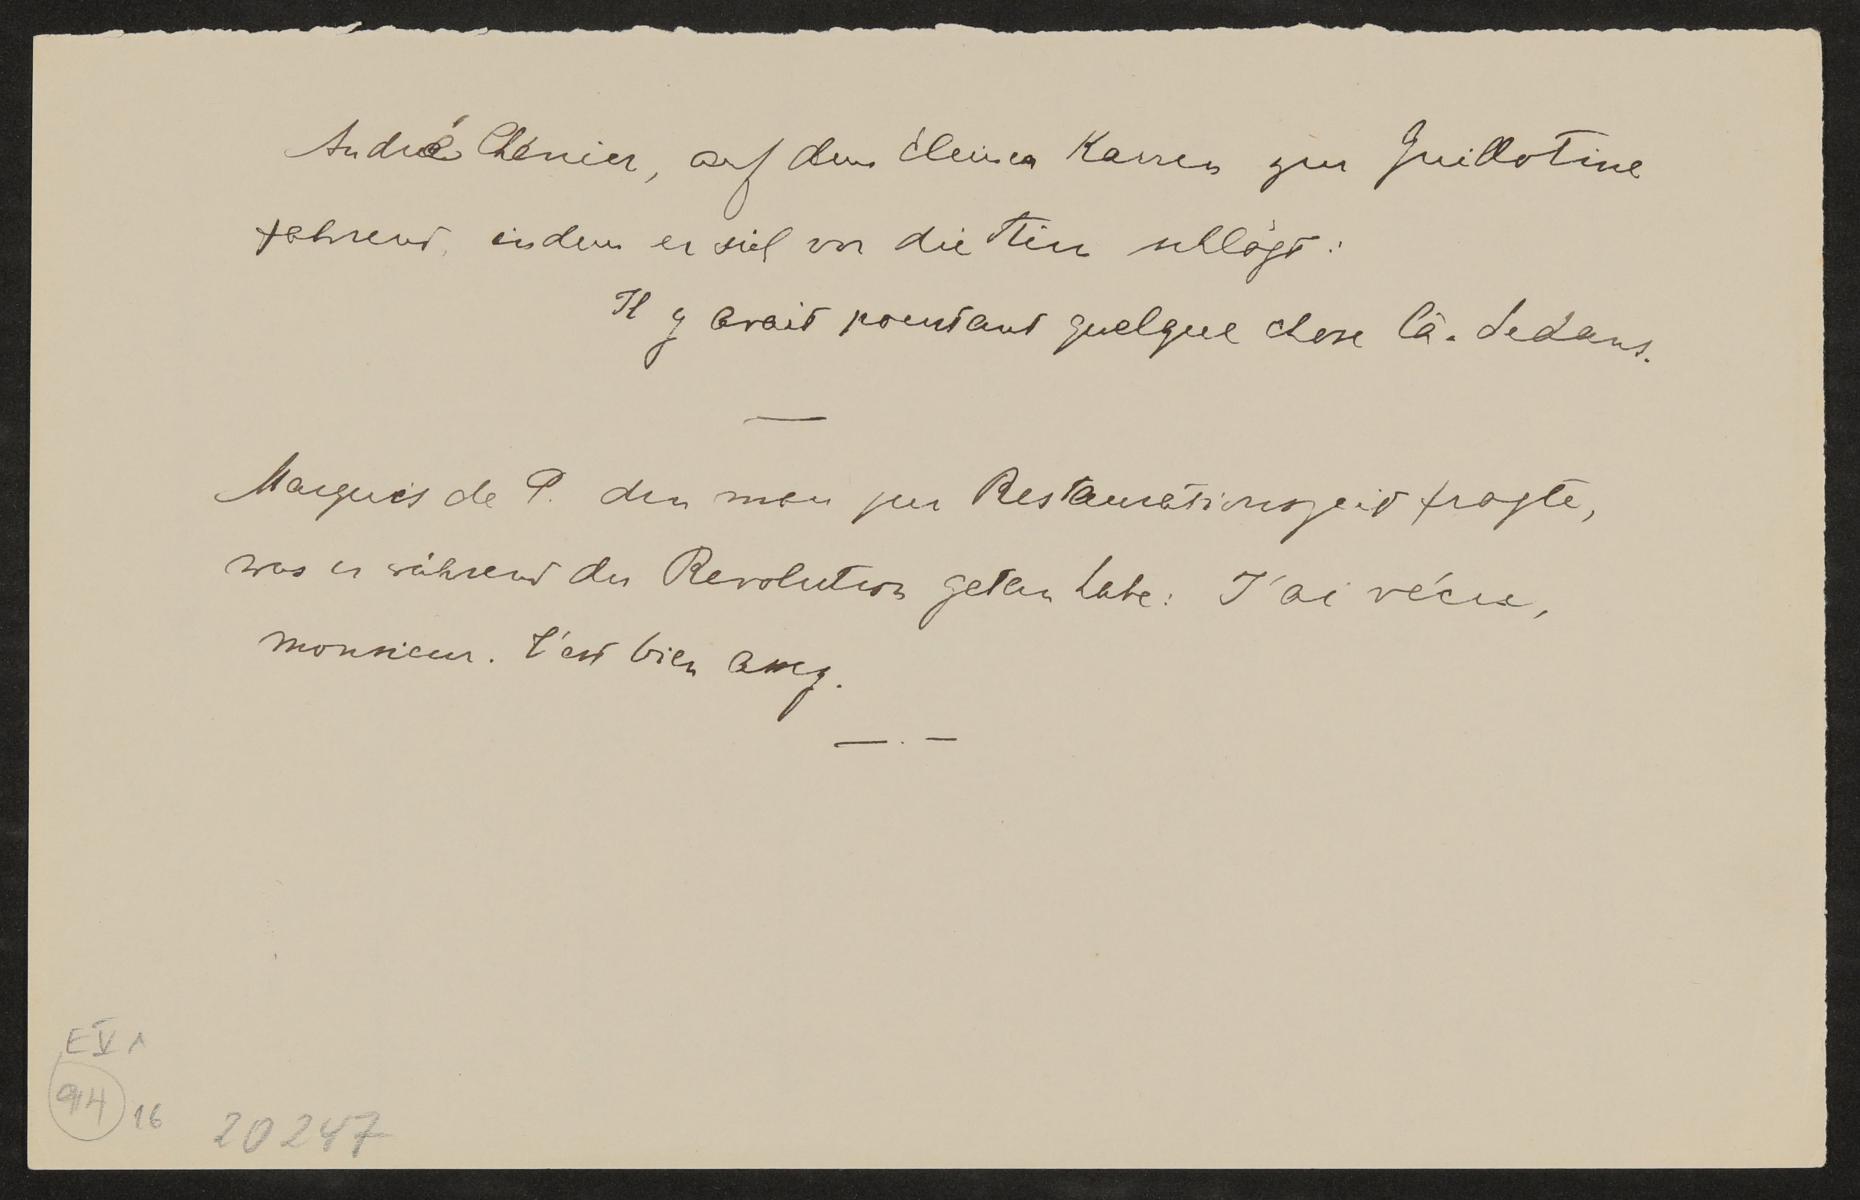 André Chénier, auf dem kleinen Karren zur Guillotine
fahrend, indem er sich vor die Stirn schlägt:
Il y avait pourtant quelque chose là-dedans.
—
Marquis de P. den man zur Restaurationszeit fragte,
was er während der Revolution getan habe: J'ai vécu,
monsieur. C'est bien assez.
— . —
E V 1
914 16 20247